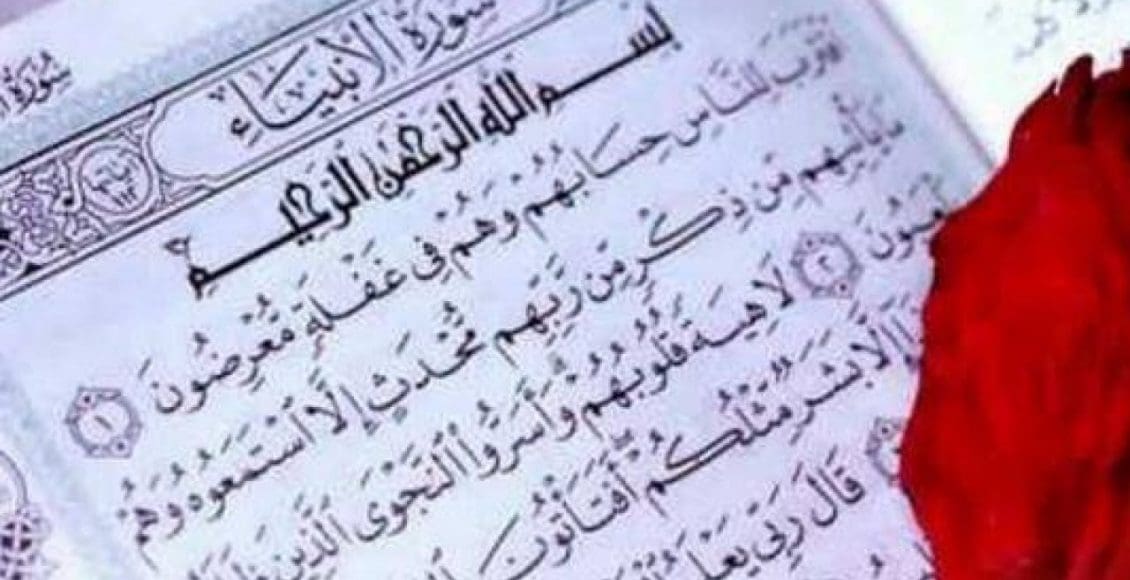 سُورَةُ الأَنبِيَاءِ
بِسْمِ اللَّهِ الرَّحْمَٰنِ الرَّحِيمِ
لِلنَّاسِ حِسَابُهُمْ وَهُمْ فِي غَفْلَةٍ مُّعْرِضُونَ ١
يَأْتِيهِم مِّن ذِكْرٍ مِّن رَّبِّهِم مُّحْدَثٍ إِلَّا ٱسْتَمَعُوهُ وَهُمْ
٢ لَاهِيَةً قُلُوبُهُمْ وَأَسَرُّوا۟ ٱلنَّجْوَى ٱلَّذِينَ
إِلَّا بَشَرٌ مِّثْلُكُمْ أَفَتَأْتُونَ
قَالَ رَبِّي يَعْلَمُ
سُورَةُ